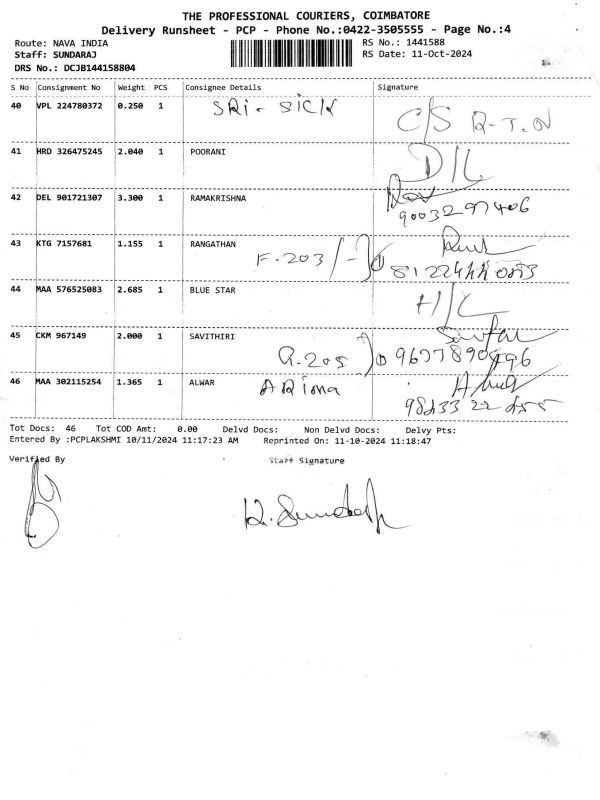 THE PROFESSIONAL COURIERS, COIMBATORE
Delivery Runsheet - PCP - Phone No.:0422-3505555 - Page No.:4
Route: NAVA INDIA
RS No.: 1441588
Staff: SUNDARAJ
RS Date: 11-Oct-2024
DRS No.: DCJB144158804
S No Consignment No Weight PCS Consignee Details Signature
40 VPL 224780372 0.250 1 SRI - SICK C/S R.T.O
41 HRD 326475245 2.040 1 POORANI D/L
42 DEL 901721307 3.300 1 RAMAKRISHNA
9003297406
43 KTG 7157681 1.155 1 RANGATHAN
F-203
44 MAA 576525083 2.685 1 BLUE STAR H/C
45 CKM 967149 2.000 1 SAVITHIRI
G-205
46 MAA 302115254 1.365 1 ALWAR
Tot Docs: 46 Tot COD Amt: 0.00 Delvd Docs: Non Delvd Docs: Delvy Pts:
Entered By :PCPLAKSHMI 10/11/2024 11:17:23 AM Reprinted On: 11-10-2024 11:18:47
Verified By Staff Signature